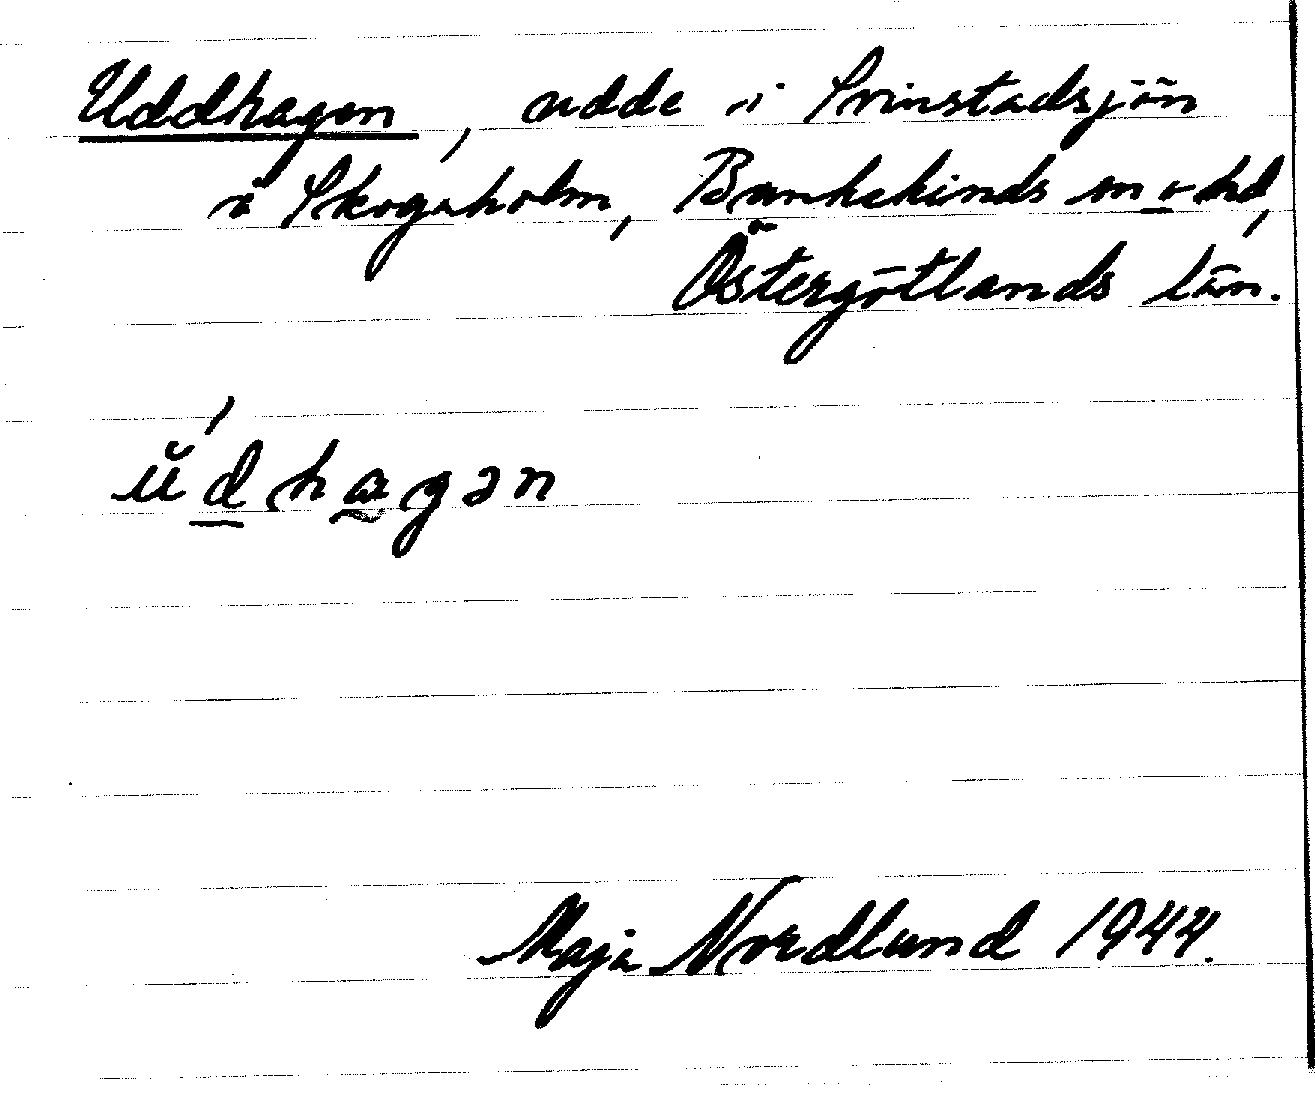 Uddhagen, udde i Svinstadsjön
i Skogaholm, Bankekinds sn o hd,
Östergötlands län.
ŭd́hagən
Maja Nordlund 1944.